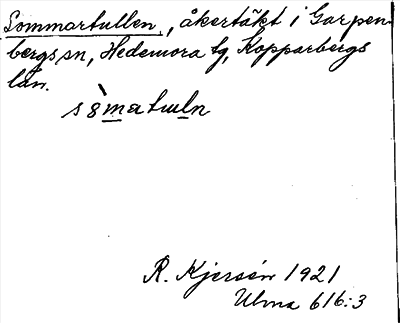 Sommartullen, åkertäkt i Garpen-
bergs sn, Hedemora tg, Kopparbergs
län.
R. Kjersén 1921
Ulma 616:3